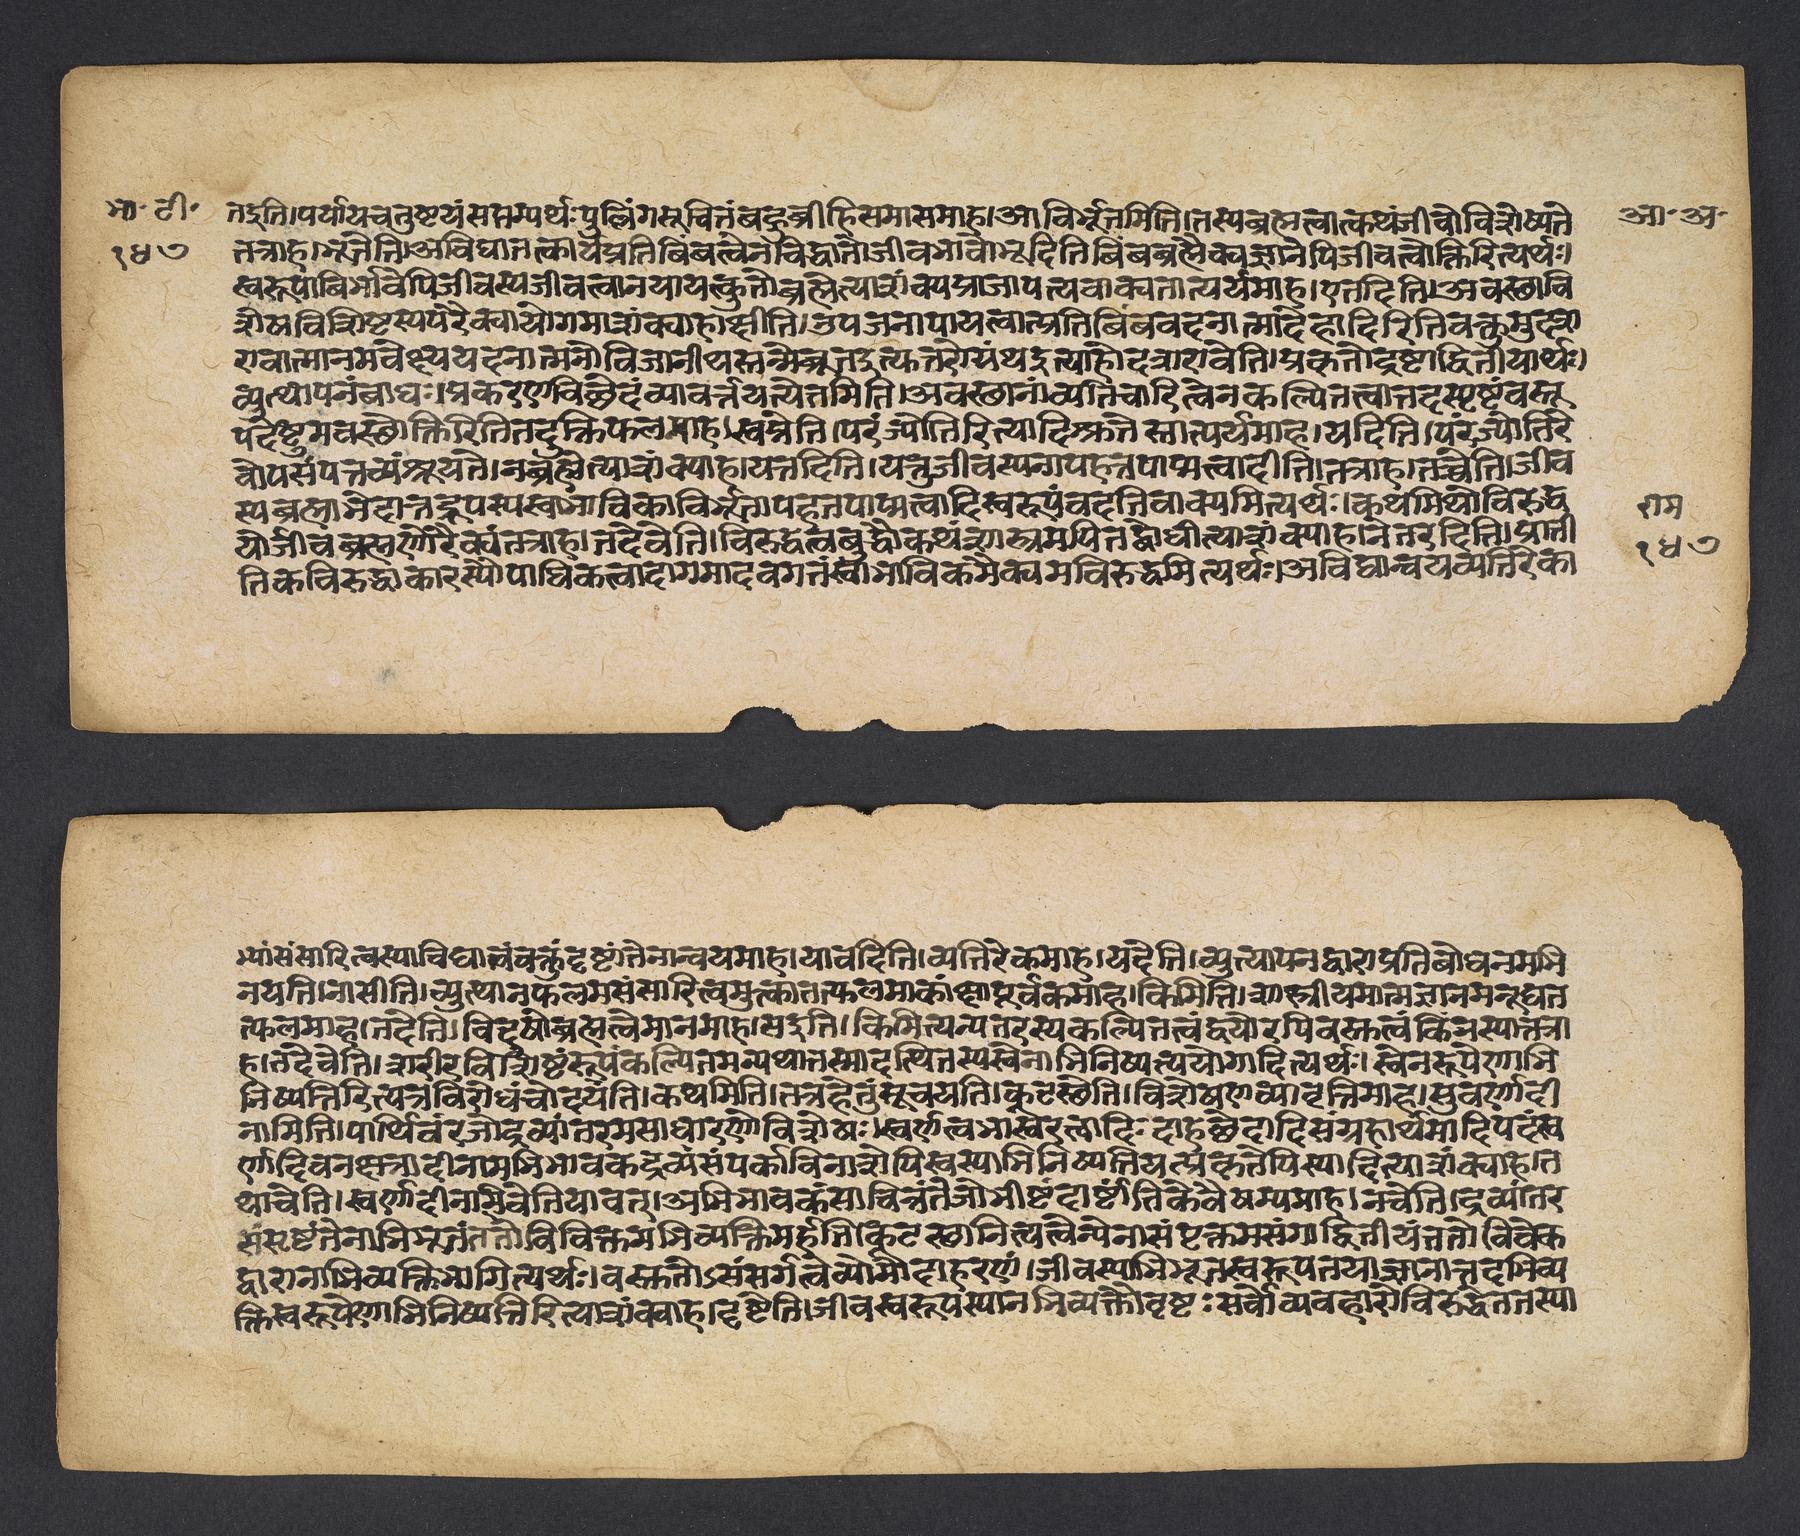 भा॰ टी॰
१५७
आ॰ अ॰
तदुति।पर्यायचतुष्टयंसप्तम्यर्थःपुल्लिंगसूचितंबहुब्रीहिसमासमाह।आविर्भूतमिति।तस्यब्रह्मत्वात्कथंजीवोविशेष्यते
तत्राह।भूतेति।अविद्यातत्कार्यप्रतिबिंबत्वेनविद्वानोजीवभावोभूदितिबिंबब्रह्मैक्यज्ञानेपिजीवत्वोक्तिरित्यर्थः।
स्वरूपाबिर्भावेपिजीवस्यजीवत्वानपायात्कुतोब्रह्मैत्याशंक्यप्राजापत्यवाक्यतात्पर्यमाह।एतदिति।अवस्थावि
शेषविशिष्टस्यपरैक्यायोगमाशंक्याहाक्षीति।उपजनापायत्वात्प्रतिबिंबवदनात्मादेहादिरितिवक्तुमुदशरा
रावात्मानमवेक्ष्ययदनात्मनोविजानीथस्तन्मेब्रूतदुत्यक्तरोग्रंथदुत्याहोदशरावेति।प्रकृतोद्रष्टाद्वितीयार्थः।
व्युत्थापनंबाधः।प्रकरणविछेदंव्यावर्त्तयत्येतमिति।अवस्थानांव्यभिचारित्वेनकल्पितत्वात्तदस्पृष्टंवस्तू
पदेष्टुमवस्थोक्तिरितितदुक्तिफलमाह।स्वप्नेति।परंज्योतिरित्यादिश्रुतेस्तात्पर्यमाह।यदिति।परंज्योतिरे
वोपसंपत्तव्यंश्रूयते।नब्रह्मेत्याशंक्याह।यत्तदिति।यत्तुजीवस्यनापहतपाप्मत्वादीति।तत्राह।तच्चेति।जीव
स्यब्रह्माभेदात्तद्रूपस्यस्वाभाविकाविर्भूतापहतपाप्मत्वादिस्वरूपंवदतिवाक्यमित्यर्थः।कथमिथोविरुद्ध
योर्जीवब्रह्मणोरैक्यंतत्राह।तदेवेति।विरुद्धत्वबुद्धौकथंशास्त्रमपितद्बोधीत्याशंक्याह।नेतरदिति।प्राती
तिकविरुद्धाकारस्यौपाधिकत्वादागमादवगतंस्वाभाविकमैक्यमविरुद्धमित्यर्थः।अविद्यान्वयव्यतिरेका
राम
१५७
भ्यांसंसारित्वस्याविद्यात्वंवक्तुंदृष्टांतेनान्वयमाह।यावदिति।व्यतिरेकमाह।यदेति।व्युत्थापनद्वाराप्रतिबोधनमभि
नयति।नासीति।व्युत्थानफलमसंसारित्वमुक्त्वातत्फलमाकांक्षापूर्वकमाह।किमिति।शास्त्रीयमात्मज्ञानमनूद्यत
त्फलमाह।तदेति।विदुषोब्रह्मत्वेमानमाह।सदुति।किमित्यन्यतरस्यकल्पितत्वंद्वयोरपिवस्तुत्वंकिंनस्यात्तत्रा
ह।तदेवेति।शारीरविशिष्टंरूपंकल्पितमन्यथातस्मादुत्थितस्यस्वेनाभिनिष्पत्त्ययोगादित्यर्थः।स्वेनरूपेणाभि
निष्पत्तिरित्यत्रविरोधंचोदयति।कथमिति।तत्रहेतुंसूचयति।कूटस्थेति।विशेषणव्यावृत्तिमाह।सुवर्णादी
नामिति।पार्थिवंरजोद्रव्यांतरमसाधारणोविशेषः।स्वर्णत्वभास्वरत्वादिःदाहछेदादिसंग्रहार्थमादिपदंस्व
र्णादिवनक्षत्रादीनामभिभावकंद्रव्यसंपर्काविनाशेपिस्वस्याभिनिष्पत्तियत्प्रकृतेपिस्यादित्याशंक्याह।त
थाचेति।स्वर्णादीनामिवेतियावत्।अभिभावकंसावित्रंतेजोभीष्टंदार्ष्टांतिकेवैषम्यमाह।नचेति।द्रव्यांतर
संसृष्टंतेनाभिभूतंततोविविक्तमभिव्यक्तिमर्हतिकूटस्थानित्यत्वेन्येनासंपृक्तमसंगाद्वितीयंततोविवेक
द्वारानाभिव्यक्तिभागित्यर्थः।वस्तुतोऽसंसर्गत्वेव्योमोदाहरणं।जीवस्याभिभूतस्वरूपतयाज्ञानात्तदभिव्य
क्तिस्वरूपेणाभिनिष्पत्तिरित्याशंक्याह।दृष्टेति।जीवस्वरूपस्यानभिव्यक्तौदृष्टःसर्वोव्यवहारोविरुद्ध्येततस्या